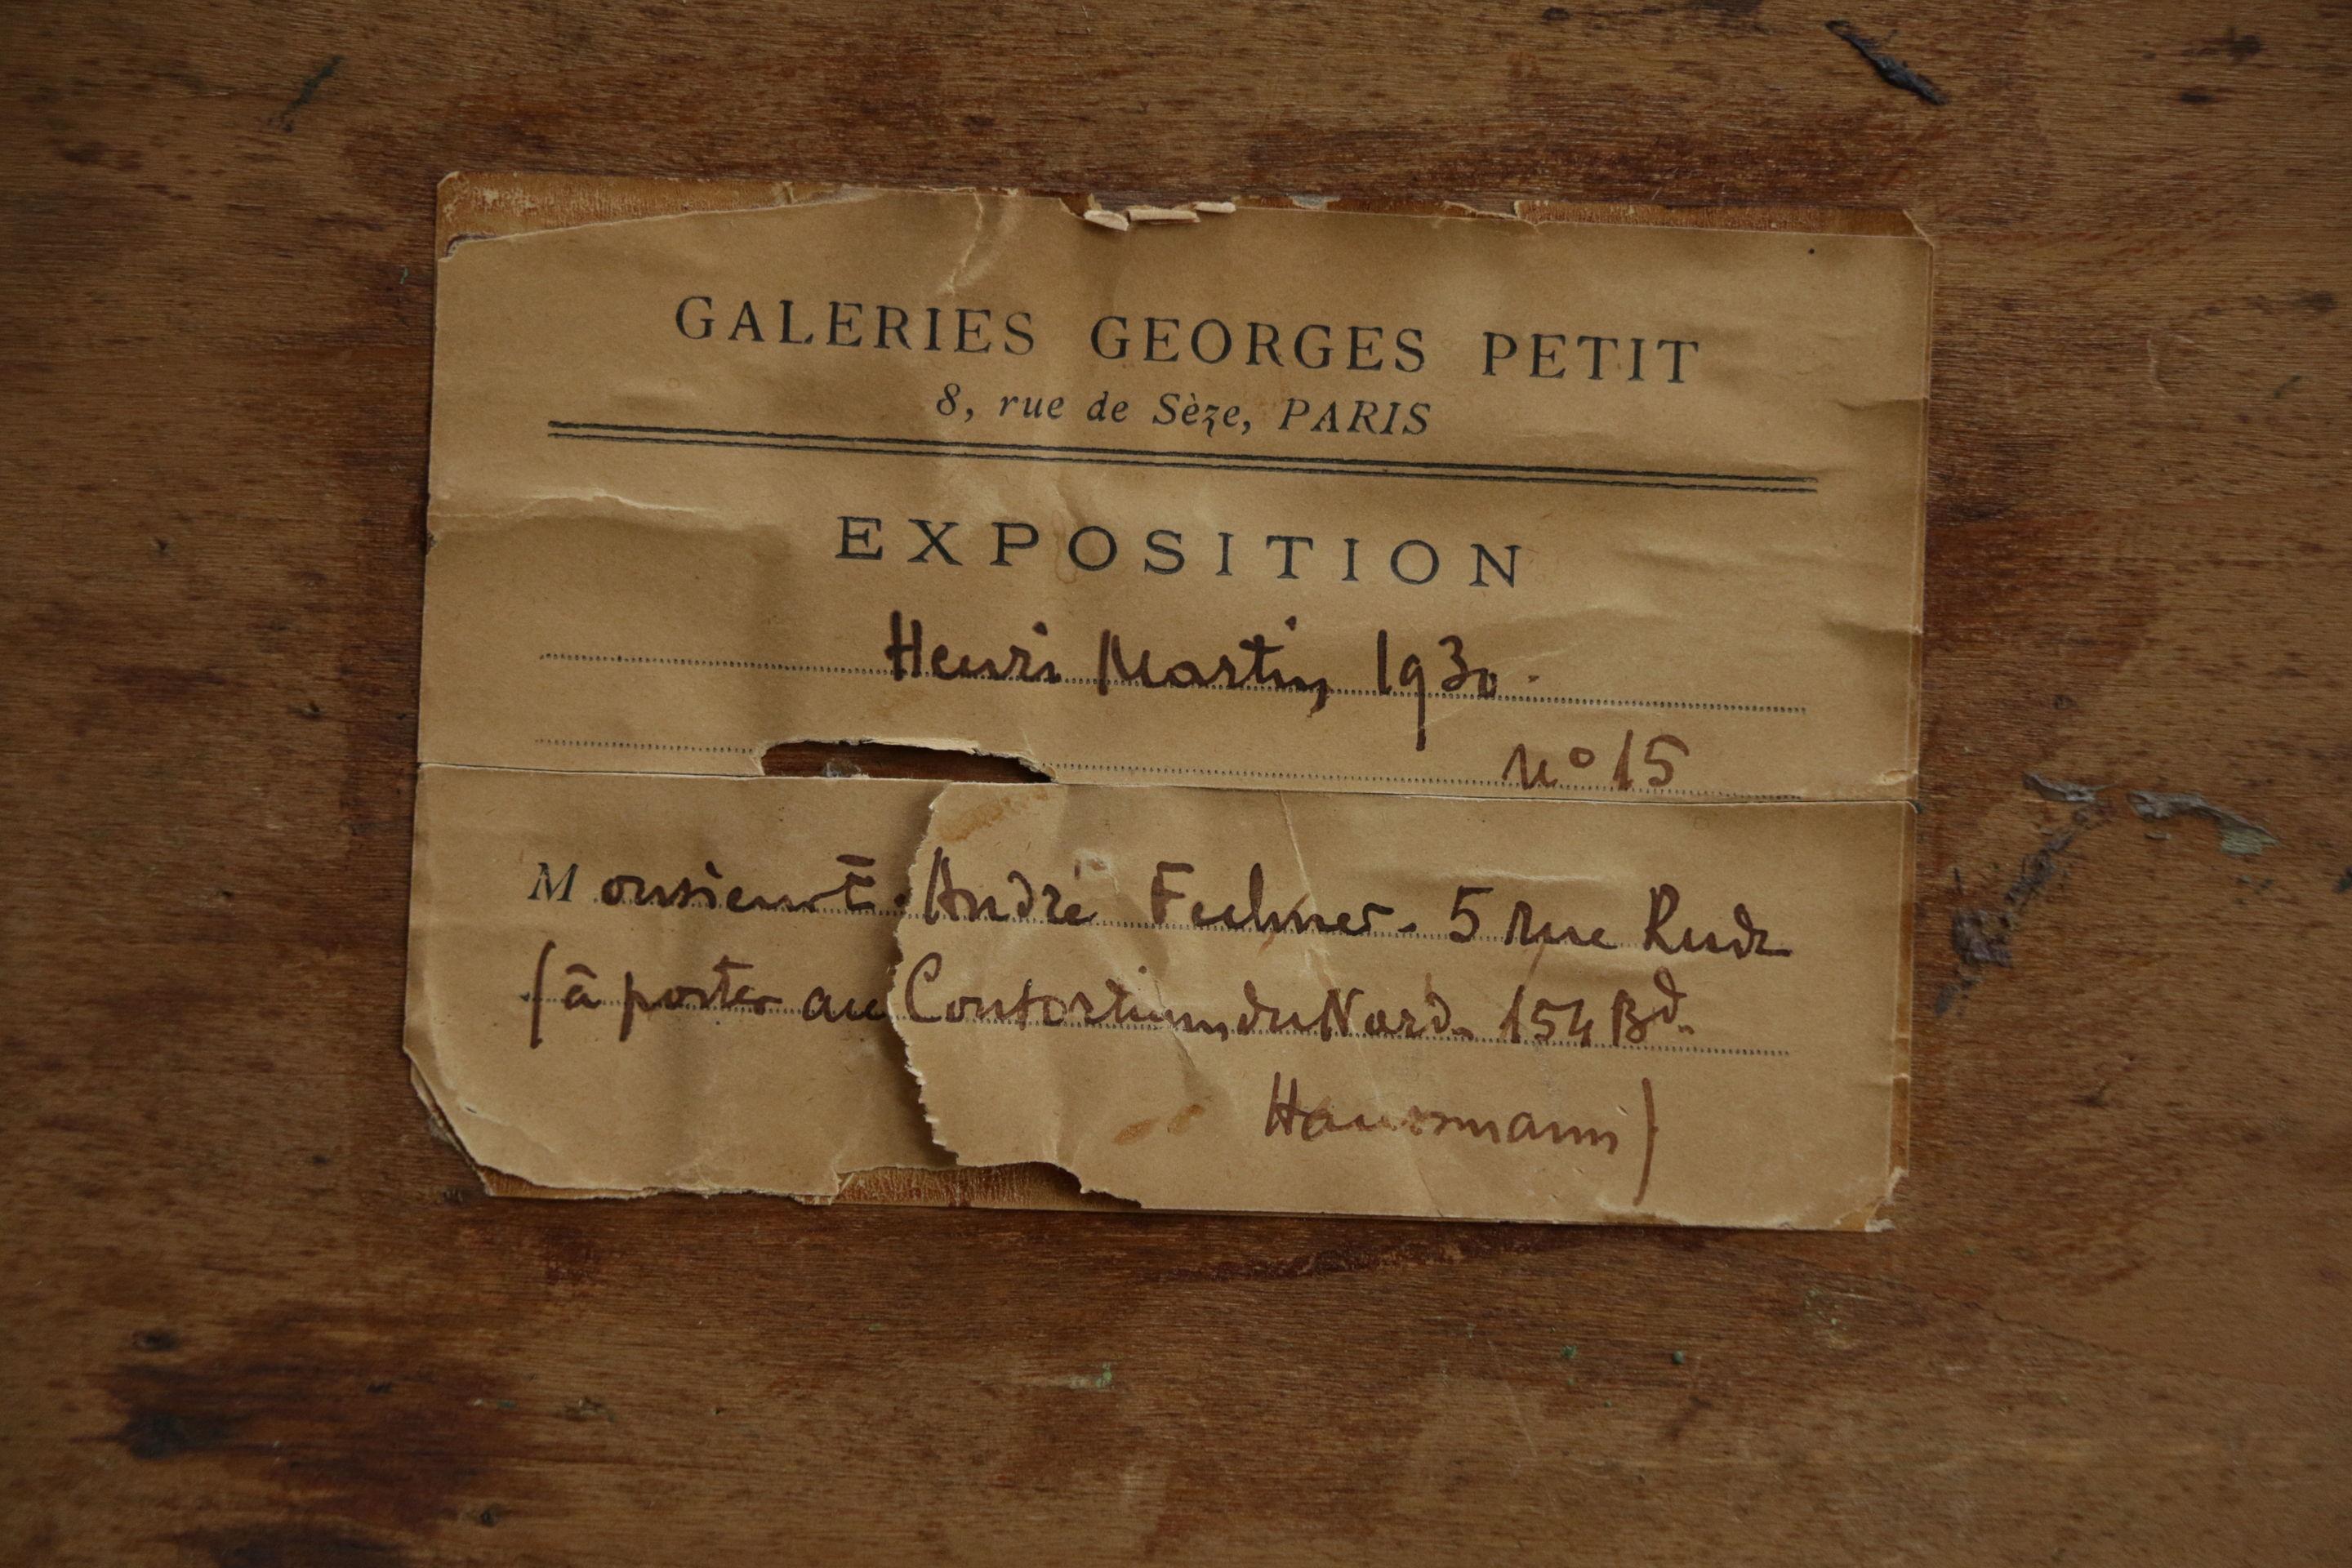 GALERIES GEORGES PETIT
8, rue de Sèze, PARIS
EXPOSITION
Henri Martin 1930.
n° 15
Monsieur André 5 rue Rude
(à porter au Consortium du Nord. 154 Bd.
Haussmann)